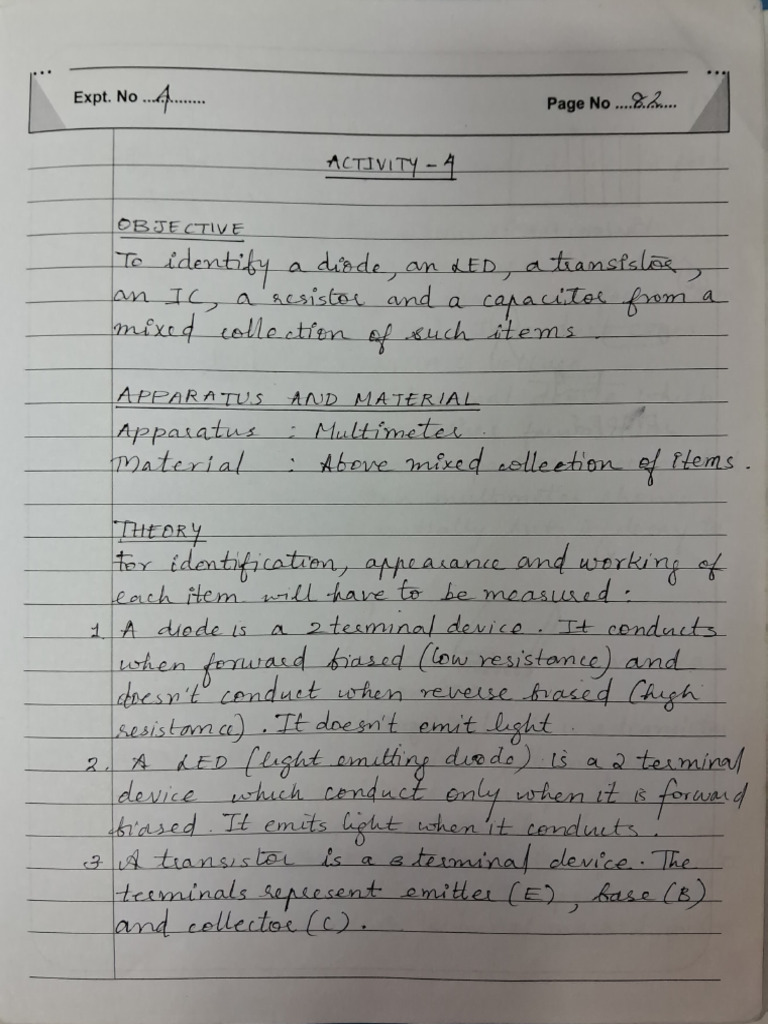 Expt. No ...4........
Page No ....82....
ACTIVITY - 4
OBJECTIVE
To identify a diode, an LED, a transistor,
an IC, a resistor and a capacitor from a
mixed collection of such items.
APPARATUS AND MATERIAL
Apparatus : Multimeter.
Material : Above mixed collection of items.
THEORY
For identification, appearance and working of
each item will have to be measured :
1. A diode is a 2 terminal device. It conducts
when forward biased (low resistance) and
doesn't conduct when reverse biased (high
resistance). It doesn't emit light.
2. A LED (light emitting diode) is a 2 terminal
device which conduct only when it is forward
biased. It emits light when it conducts.
3 A transistor is a 3 terminal device. The
terminals represent emitter (E), base (B)
and collector (C).